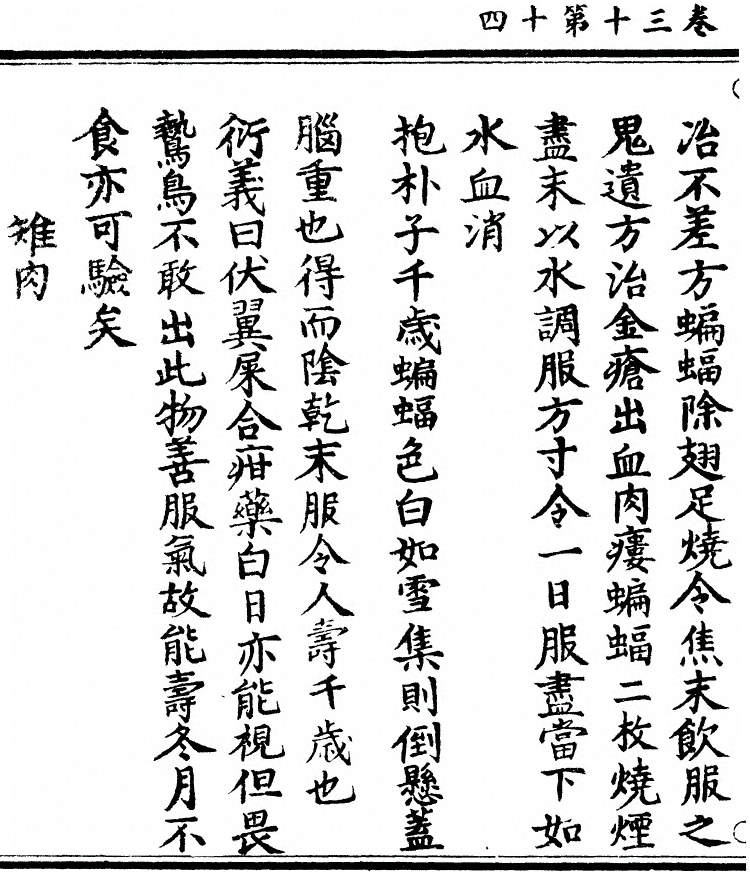 卷三十第十四
冶不差方蝙蝠除翅足燒令焦末飲服之
鬼遺方治金瘡出血肉瘻蝙蝠二枚燒煙
盡末以水調服方寸令一日服盡當下如
水血消
抱朴子千歲蝙蝠色白如雪集則倒懸蓋
腦重也得而陰乾末服令人壽千歲也
衍義曰伏翼屎合疳藥白日亦能視但畏
鷙鳥不敢出此物善服氣故能壽冬月不
食亦可驗矣
雉肉